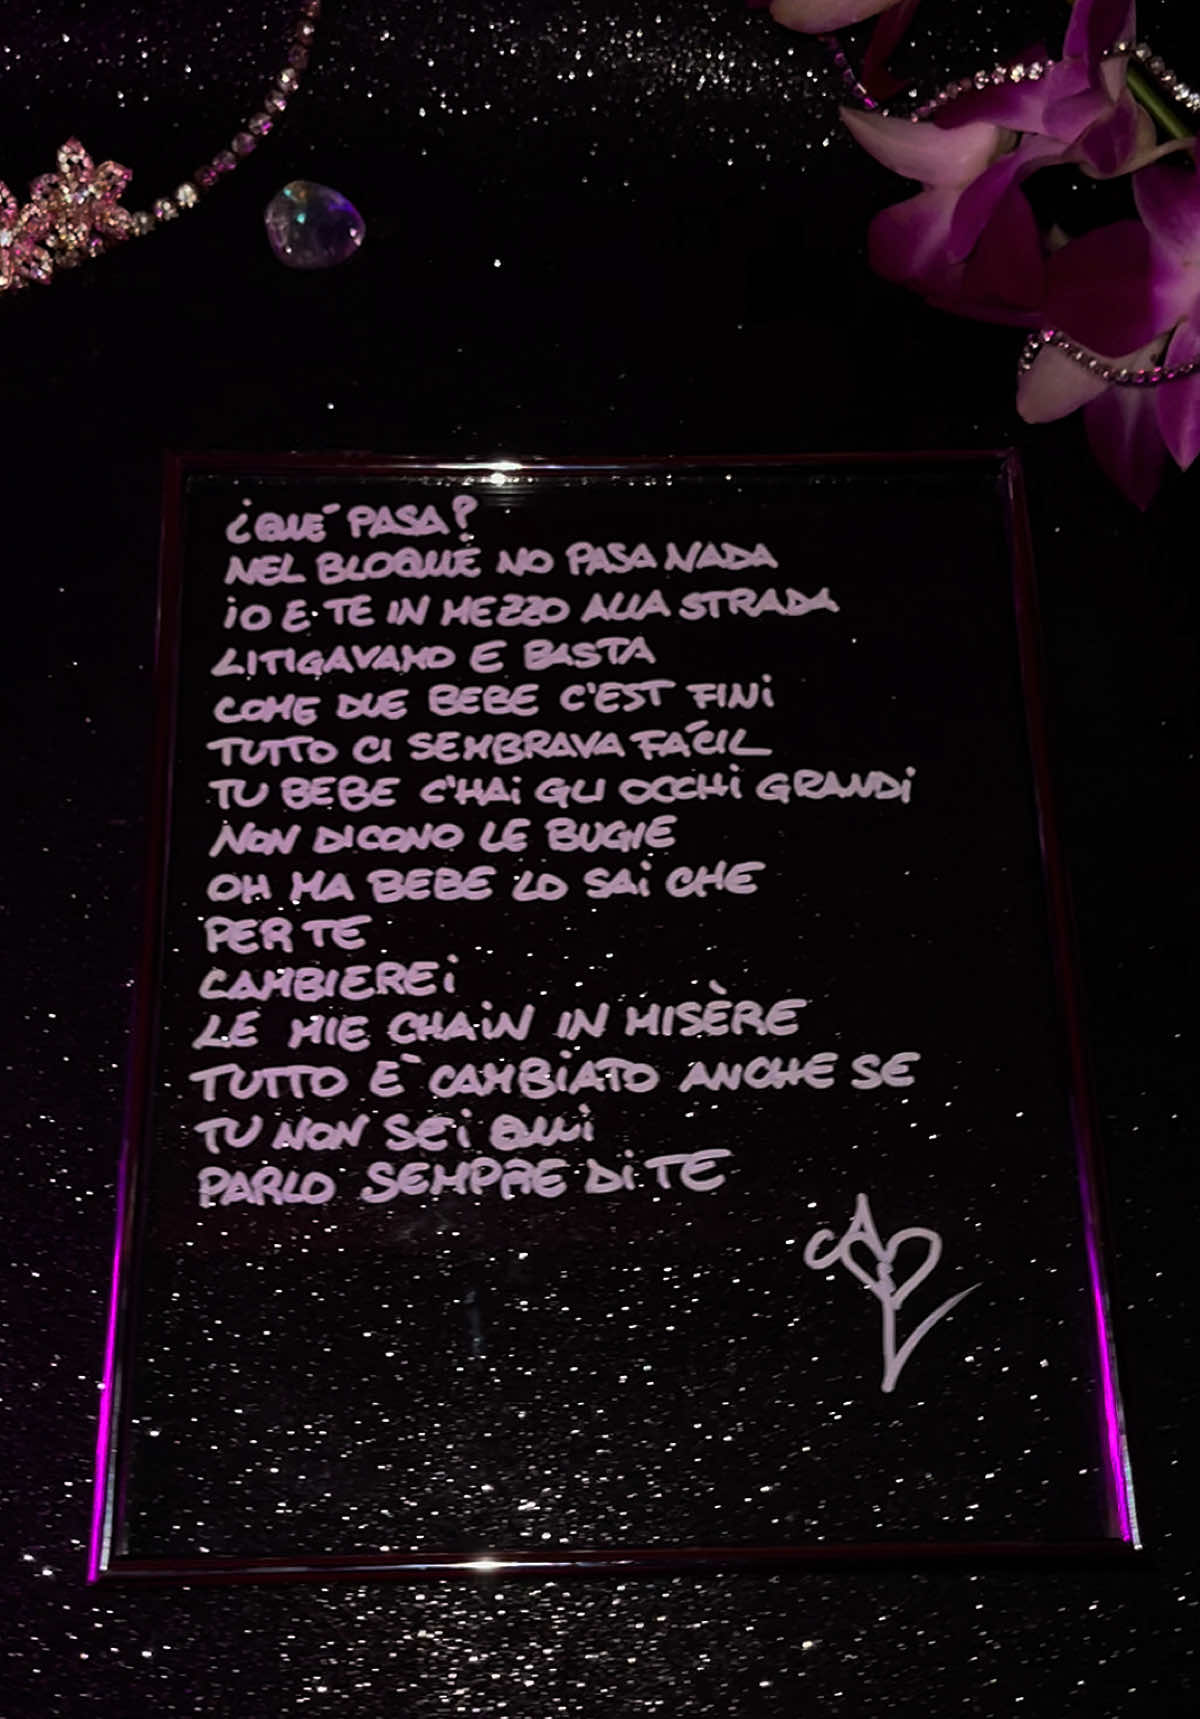 ¿QUÉ PASA?
NEL BLOQUE NO PASA NADA
IO E TE IN MEZZO ALLA STRADA
LITIGAVAMO E BASTA
COME DUE BEBE C'EST FINI
TUTTO CI SEMBRAVA FÁCIL
TU BEBE C'HAI GLI OCCHI GRANDI
NON DICONO LE BUGIE
OH MA BEBE LO SAI CHE
PER TE
CAMBIEREI
LE MIE CHAIN IN MISÈRE
TUTTO È CAMBIATO ANCHE SE
TU NON SEI QUI
PARLO SEMPRE DI TE